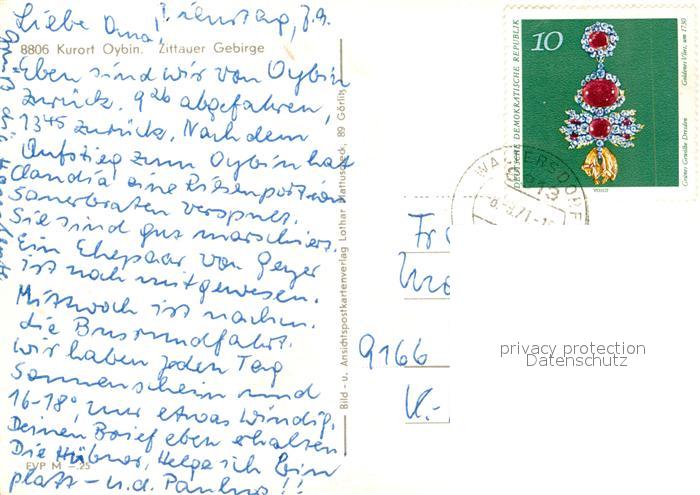 Liebe Oma, Dienstag, 7.9.
8806 Kurort Oybin. Zittauer Gebirge
Eben sind wir von Oybin
zurück. 9²⁶ abgefahren,
13⁴⁵ zurück. Nach dem
Aufstieg zum Oybin hat
Claudia eine Riesenportion
Sauerbraten verspeist.
Sie sind gut marschiert.
Ein Ehepaar von Geyer
ist noch mitgewesen.
Mittwoch ist nachm.
die Busrundfahrt.
Wir haben jeden Tag
Sonnenschein und
16-18°, nur etwas windig.
Deinen Brief eben erhalten
Die Hübner, Helga ich
platz - u. d.
EVP M -.25
Bild- u. Ansichtspostkartenverlag Lothar Mattuscheck, 89 Görlitz
10
DEUTSCHE DEMOKRATISCHE REPUBLIK
Goldenes Vlies, um 1730
Grünes Gewölbe Dresden
WALTERSDORF
Fr
9166
K.-
privacy protection
Datenschutz